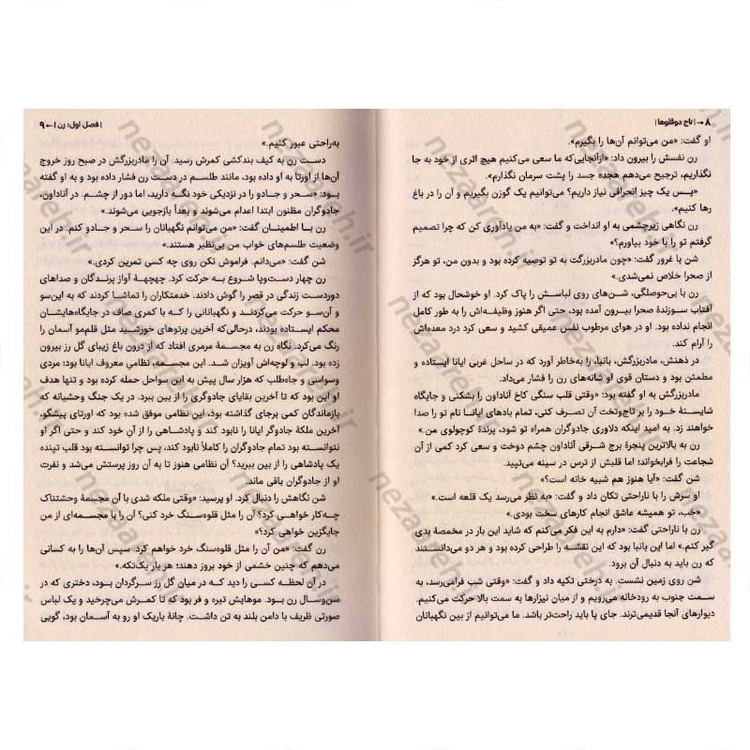 ۸ → | تاج دوقلوها |
او گفت: «من می‌توانم آن‌ها را بگیرم».
رن نفسش را بیرون داد: «ازآنجایی‌که ما سعی می‌کنیم هیچ اثری از خود به جا
نگذاریم، ترجیح می‌دهم هجده جسد را پشت سرمان نگذارم.»
«پس یک چیز انحرافی نیاز داریم؟ می‌توانیم یک گوزن بگیریم و آن را در باغ
رها کنیم».
رن نگاهی زیرچشمی به او انداخت و گفت: «به من یادآوری کن که چرا تصمیم
گرفتم تو را با خود بیاورم؟»
شن با غرور گفت: «چون مادربزرگت به تو توصیه کرده بود و بدون من، تو هرگز
از صحرا خلاص نمی‌شدی.»
رن با بی‌حوصلگی، شن‌های روی لباسش را پاک کرد. او خوشحال بود که از
آفتاب سوزندهٔ صحرا بیرون آمده بود، حتی اگر هنوز وظیفه‌اش را به طور کامل
انجام نداده بود. او در هوای مرطوب نفس عمیقی کشید و سعی کرد درد معده‌اش
را آرام کند.
در ذهنش، مادربزرگش، بانبا، را به‌خاطر آورد که در ساحل غربی ایانا ایستاده و
مطمئن بود و دستان قوی او شانه‌های رن را فشار می‌داد.
مادربزرگش به او گفته بود: «وقتی قلب سنگی کاخ آناداون را بشکنی و جایگاه
شایستهٔ خود را بر تاج‌وتخت آن تصرف کنی، تمام بادهای ایانا نام تو را صدا
خواهند زد. به امید اینکه دلاوری جادوگران همراه تو شود، پرندهٔ کوچولوی من.»
رن به بالاترین پنجرهٔ برج شرقی آناداون چشم دوخت و سعی کرد کمی از آن
شجاعت را فرابخواند؛ اما قلبش از ترس در سینه می‌تپید.
شن گفت: «آیا هنوز هم شبیه خانه است؟»
او سرش را با ناراحتی تکان داد و گفت: «به نظر می‌رسد یک قلعه است.»
«خب، تو همیشه عاشق انجام کارهای سخت بودی.»
رن با ناراحتی گفت: «دارم به این فکر می‌کنم که شاید این بار در مخمصهٔ بدی
گیر کنم.» اما این بانبا بود که این نقشه را طراحی کرده بود و هر دو می‌دانستند
که رن باید به دنبال آن برود.
شن روی زمین نشست. به درختی تکیه داد و گفت: «وقتی شب فرامی‌رسد، به
سمت جنوب به رودخانه می‌رویم و از میان نیزارها به سمت بالا حرکت می‌کنیم.
دیوارهای آنجا قدیمی‌ترند. جای پا باید راحت‌تر باشد. ما می‌توانیم از بین نگهبانان
| فصل اول: رن | ← ۹
به‌راحتی عبور کنیم.»
دست رن به کیف بندکشی کمرش رسید. آن را مادربزرگش در صبح روز خروج
آن‌ها از اورتا به او داده بود، مانند طلسم در دست رن فشار داده بود و به او گفته
بود: «سحر و جادو را در نزدیکی خود نگه دارید، اما دور از چشم. در آناداون،
جادوگران مظنون ابتدا اعدام می‌شوند و بعداً بازجویی می‌شوند.»
رن با اطمینان گفت: «من می‌توانم نگهبانان را سحر و جادو کنم. در این
وضعیت طلسم‌های خواب من بی‌نظیر هستند.»
شن گفت: «می‌دانم. فراموش نکن روی چه کسی تمرین کردی.»
رن چهار دست‌وپا شروع به حرکت کرد. چهچهٔ آواز پرندگان و صداهای
دوردست زندگی در قصر را گوش دادند. خدمتکاران را تماشا کردند که به این‌سو
و آن‌سو حرکت می‌کردند و نگهبانانی را که با کمری صاف در جایگاه‌هایشان
محکم ایستاده بودند، درحالی‌که آخرین پرتوهای خورشید مثل قلم‌مو آسمان را
رنگ می‌کرد. نگاه رن به مجسمهٔ مرمری افتاد که از درون باغ زیبای گل رز بیرون
زده بود. لب و لوچه‌اش آویزان شد. این مجسمه، نظامیِ معروف ایانا بود؛ مردی
وسواسی و جاه‌طلب که هزار سال پیش به این سواحل حمله کرده بود و تنها هدف
او این بود که تا آخرین بقایای جادوگری را از بین ببرد. در یک جنگ وحشیانه که
بازماندگان کمی برجای گذاشته بود، این نظامی موفق شده بود که اورتای پیشگو،
آخرین ملکهٔ جادوگر ایانا را نابود کند و پادشاهی را از آنِ خود کند و حتی اگر او
نتوانسته بود تمام جادوگران را کاملاً نابود کند، پس چرا توانسته بود قلب تپنده
یک پادشاهی را از بین ببرد؟ آن نظامی هنوز تا به آن روز پرستش می‌شد و نفرت
او از جادوگران باقی ماند.
شن نگاهش را دنبال کرد. او پرسید: «وقتی ملکه شدی با آن مجسمهٔ وحشتناک
چه‌کار خواهی کرد؟ آن را مثل قلوه‌سنگ خرد کنی؟ آن را با مجسمه‌ای از من
جایگزین خواهی کرد؟»
رن گفت: «من آن را مثل قلوه‌سنگ خرد خواهم کرد. سپس آن‌ها را به کسانی
می‌دهم که چنین خشمی از خود بروز دهند؛ هر بار یک‌تکه.»
در آن لحظه کسی را دید که در میان گل رز سرگردان بود، دختری که در
سن‌وسال رن بود. موهایش تیره و فر بود که تا کمرش می‌چرخید و یک لباس
صورتی ظریف با دامن بلند به تن داشت. چانهٔ باریک او رو به آسمان بود، گویی
nezaareh.ir